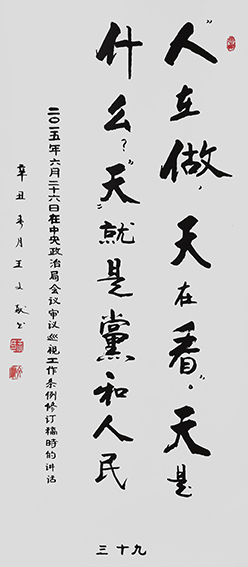 “人在做，天在看。”天是
什么？“天”就是黨和人民
二〇一五年六月二十六日在中央政治局会议审议巡视工作条例修订稿時的讲话
辛丑年月王文书
三十九